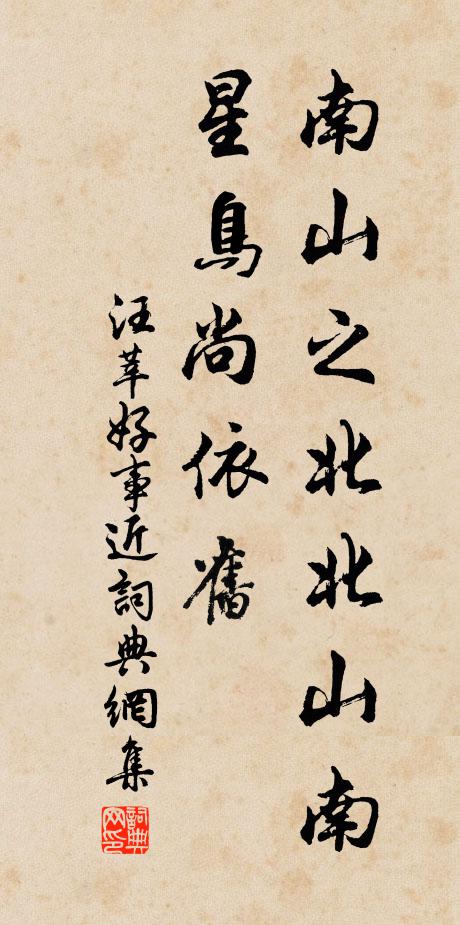 南山之北北山南
星鳥尚依舊
汪莘好事近詞典網集
詞典网印